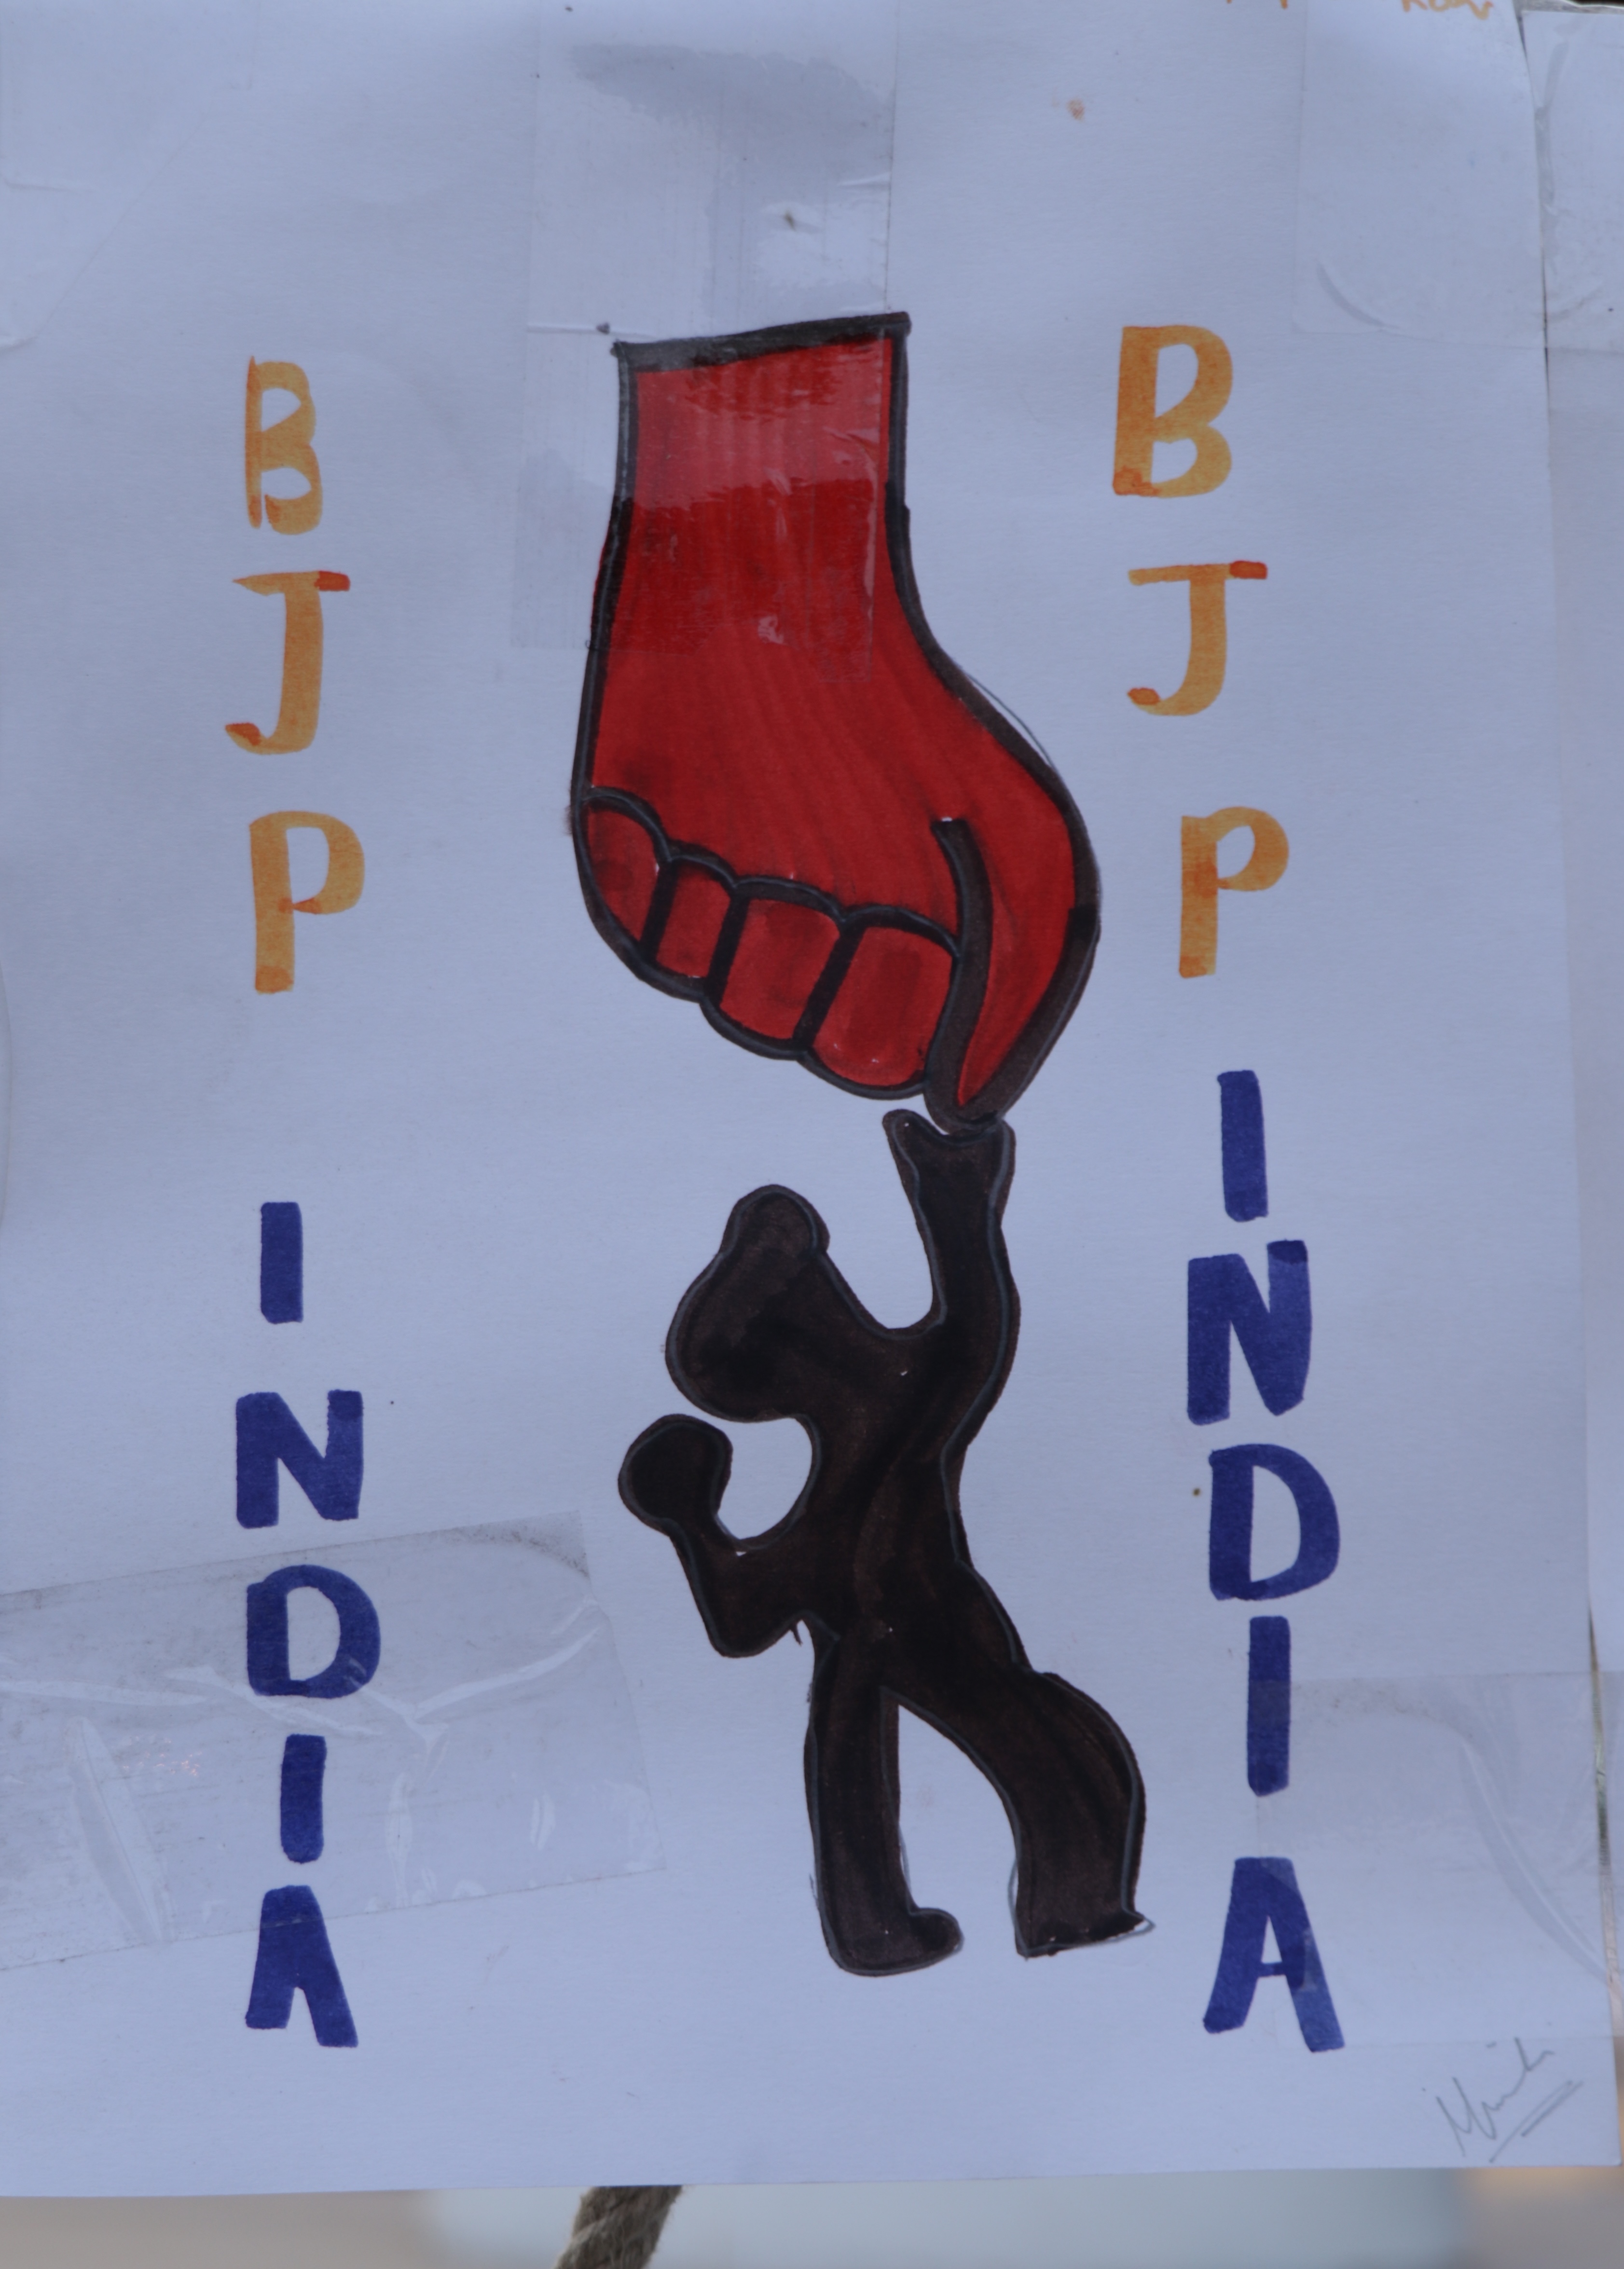 B
J
P
I
N
D
I
A
B
J
P
I
N
D
I
A